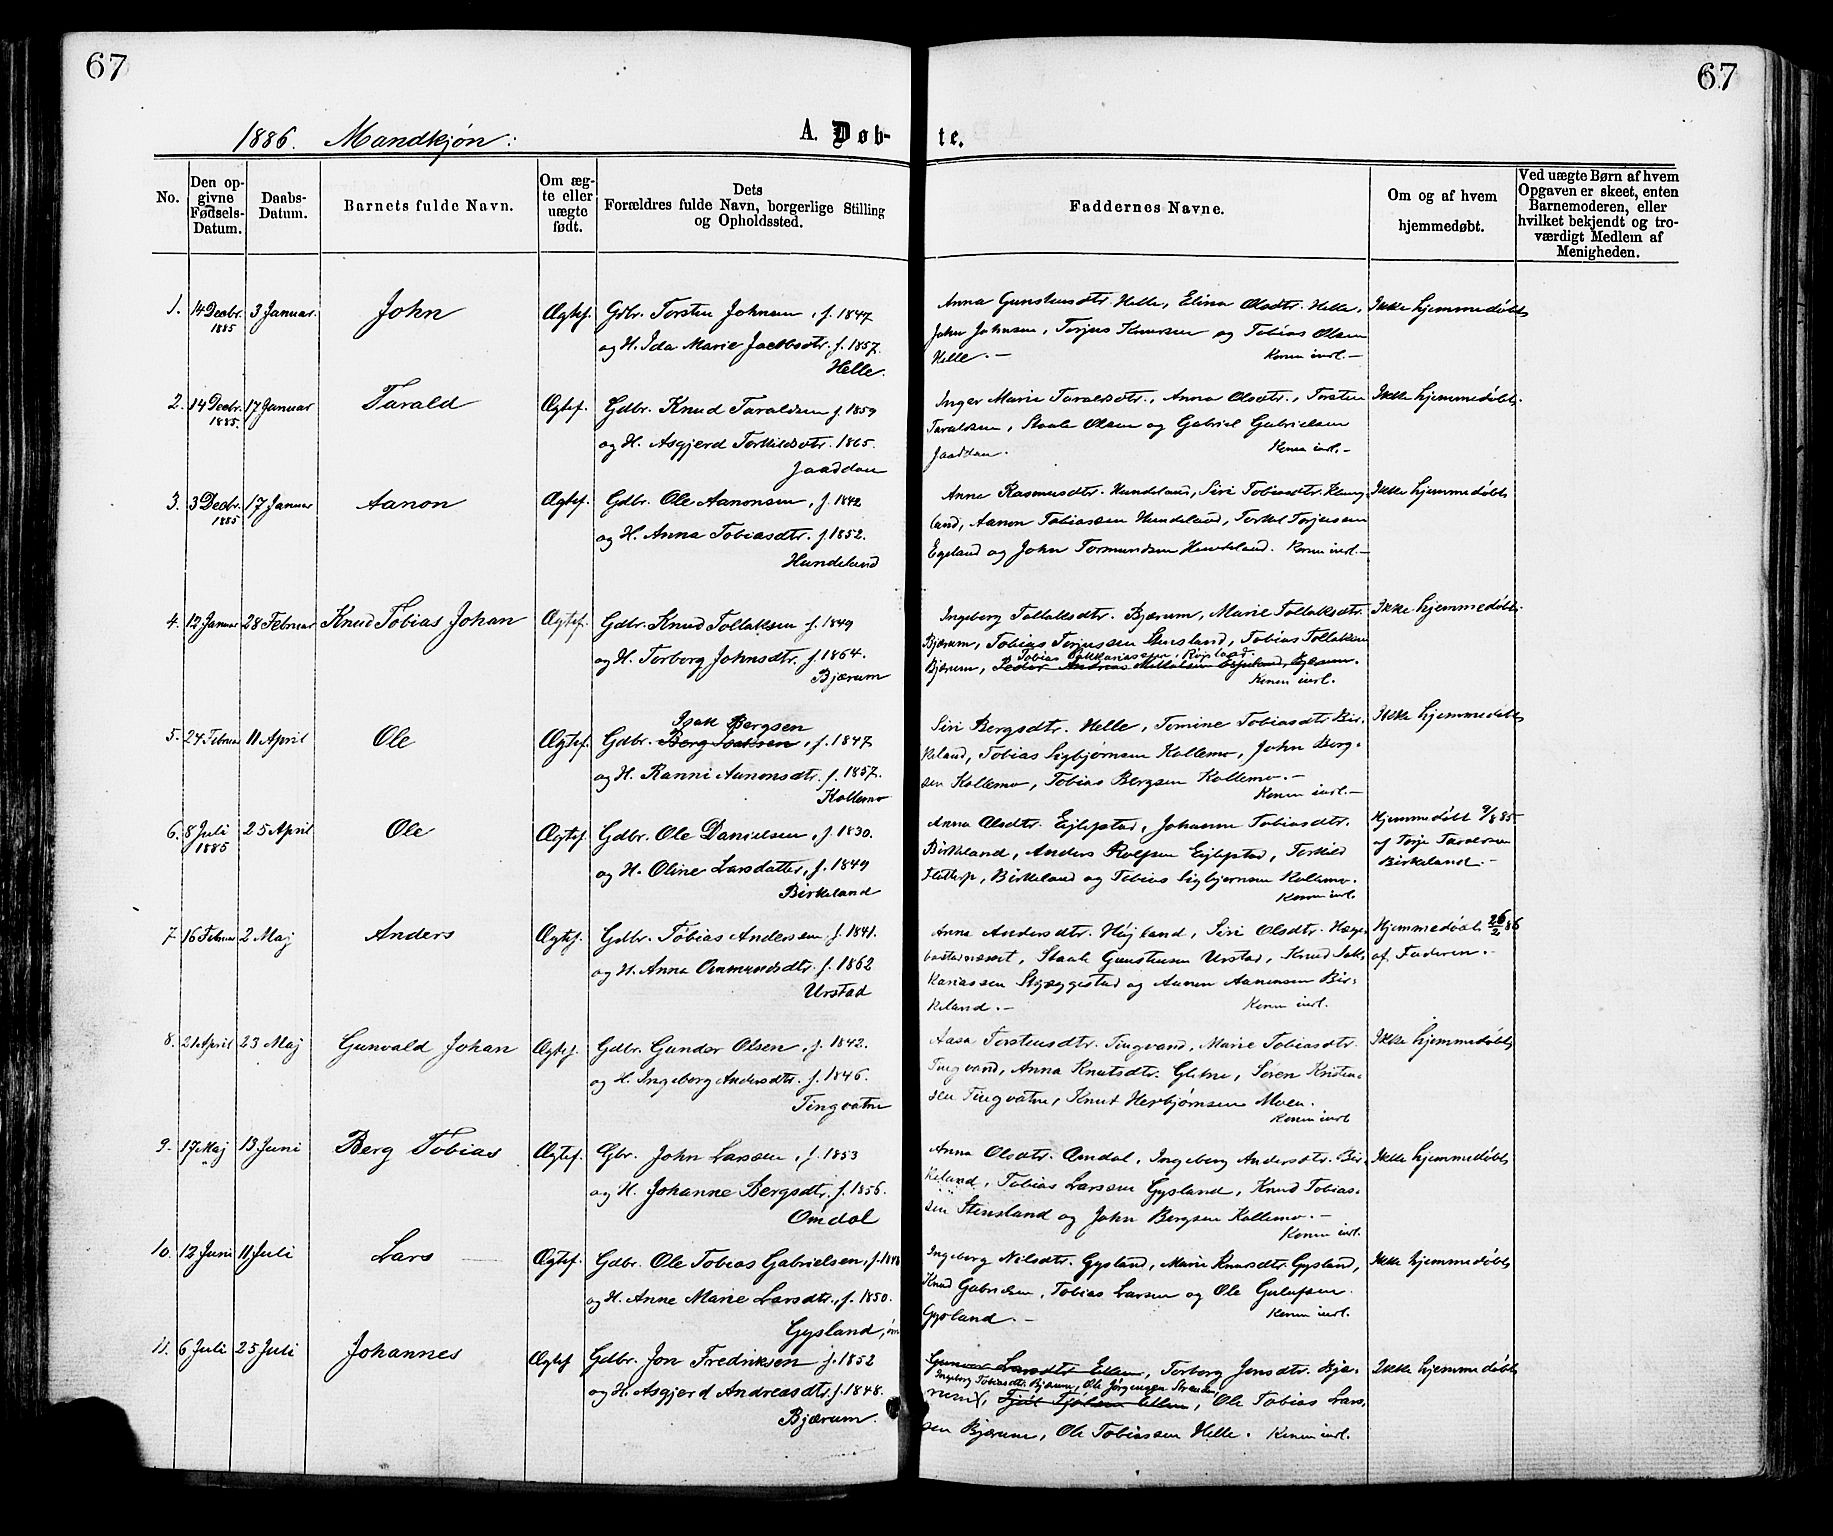 67
67
1886. Mandkjøn:
A. Døb-
te.
No.
Den op-
givne
Fødsels-
Datum.
Daabs-
Datum.
Barnets fulde Navn.
Om æg-
te eller
uægte
født.
Dets
Forældres fulde Navn, borgerlige Stilling
og Opholdssted.
Faddernes Navne.
Om og af hvem
hjemmedøbt.
Ved uægte Børn af hvem
Opgaven er skeet, enten
Barnemoderen, eller
hvilket bekjendt og tro-
værdigt Medlem af
Menigheden.
1. 14 Decbr. 1885 3 Januar. John Ægtef. Gdbr. Torsten Johnsen, f. 1847
og H. Ida Marie Jacobsdtr. f. 1857.
Helle.
Anna Gunstensdtr. Helle, Elina Olsdtr. Helle,
John Johnsen, Torjus Knutsen og Tobias Olsen
Helle. —
Ikke hjemmedøbt
2. 14 Decbr. 1885. 17 Januar Tarald Ægtef. Gdbr. Knud Taraldsen f. 1859
og H. Asgjerd Torkildsdtr. 1865.
Jaaddan
Inger Marie Taraldsdtr., Anna Olsdtr., Torsten
Taraldsen, Staale Olsen og Gabriel Gabrielsen
Jaaddan.
Ikke hjemmedøbt.
3. 3 Decbr. 1885 17 Januar Aanon Ægtef. Gdbr. Ole Aanonsen, f. 1842
og H. Anna Tobiasdtr. f. 1852.
Hundeland
Anna Rasmusdtr. Hundeland, Siri Tobiasdtr.
land, Aanon Tobiassen Hundeland, Torkel Torjussen
Egeland og John Tormundsen Hundeland.
Ikke hjemmedøbt
4. 12 Januar 28 Februar Knud Tobias Johan Ægtef. Gdbr. Knud Tollaksen f. 1849
og H. Torborg Johnsdtr. f. 1864.
Bjærum
Ingeborg Tollaksdtr. Bjærum, Marie Tollaksdtr.
Bjærum, Tobias Torjussen Stensland, Tobias Tollaksen
Tobias Sakkariassen,
Bjærum, Peder Andreas
Ikke hjemmedøbt.
5. 24 Februar 11 April Ole Ægtef. Gdbr. Berg Isaksen, f. 1847
Isak Bergsen
og H. Ranni Aanonsdtr. f. 1857.
Kollemo
Siri Bergsdtr. Helle, Tomine Tobiasdtr Bir-
keland, Tobias Sigbjørnsen Kollemo, John Berg-
sen Kollemo, Tobias Bergsen Kollemo. —
Ikke hjemmedøbt
6. 8 Juli 1885 25 April Ole Ægtef. Gdbr. Ole Danielsen, f. 1830.
og H. Oline Larsdatter, f. 1849
Birkeland
Anna Olsdtr. Eglepstad, Johanne Tobiasdtr.
Birkeland, Anders Rolfsen Eglepstad, Torkild
Birkeland og Tobias Sigbjørnsen Kollemo.
Hjemmedøbt 9/8 85
af Torje
Birkeland. —
7 16 Februar 2 Maj Anders Ægtef. Gdbr. Tobias Andersen, f. 1841.
og H. Anna Ommundsdtr. f. 1862
Urstad
Anna Andersdtr. Højland, Siri Olsdtr. Hæge-
bostadnæset, Staale Gunstensen Urstad, Knud Sak-
kariassen Skjæggestad og Aanen Aanensen Bir-
keland. —
Hjemmedøbt 26/2 86
af Faderen. —
8. 21 April 23 Maj Gunvald Johan Ægtef. Gdbr. Gunder Olsen, f. 1842.
og H. Ingeborg Andersdtr. f. 1846.
Tingvatne
Aasa Torstensdtr. Tingvand, Marie Tobiasdtr.
Tingvand, Anna Knutsdtr. Gletne, Søren Kristen-
sen Tingvatne, Knut Herbjørnsen Moen.
Ikke hjemmedøbt
9. 17 Maj 13 Juni Berg Tobias Ægtef. Gbr. John Larsen, f. 1853
og H. Johanne Bergsdtr. f. 1856.
Omdal
Anna Olsdtr. Omdal, Ingeborg Andersdtr. Bir-
keland, Tobias Larsen Gysland, Knud Tobias-
sen Stensland og John Bergsen Kollemo. —
Ikke hjemmedøbt
10. 12 Juni 11 Juli Lars Ægtef. Gdbr. Ole Tobias Gabrielsen, f. 1848
og H. Anne Marie Larsdtr., f. 1850.
Gysland,
Ingeborg Nilsdtr. Gysland, Marie Knutsdtr. Gysland,
Knud Gabrielsen, Tobias Larsen og Ole Gulufsen
Gysland. —
Ikke hjemmedøbt
11. 6 Juli 25 Juli Johannes Ægtef Gdbr. Jon Fredriksen f. 1852
og H. Asgjerd Andreasdtr. f. 1848.
Bjærum.
Gunvor Larsdtr Ellen, Torborg Jonsdtr. Bjæ-
Ingeborg Tobiasdtr. Bjærum, Ole Jørgensen
rum, Ole Tobias Lars-
sen Bjærum, Ole Tobiassen Helle.
Ikke hjemmedøbt